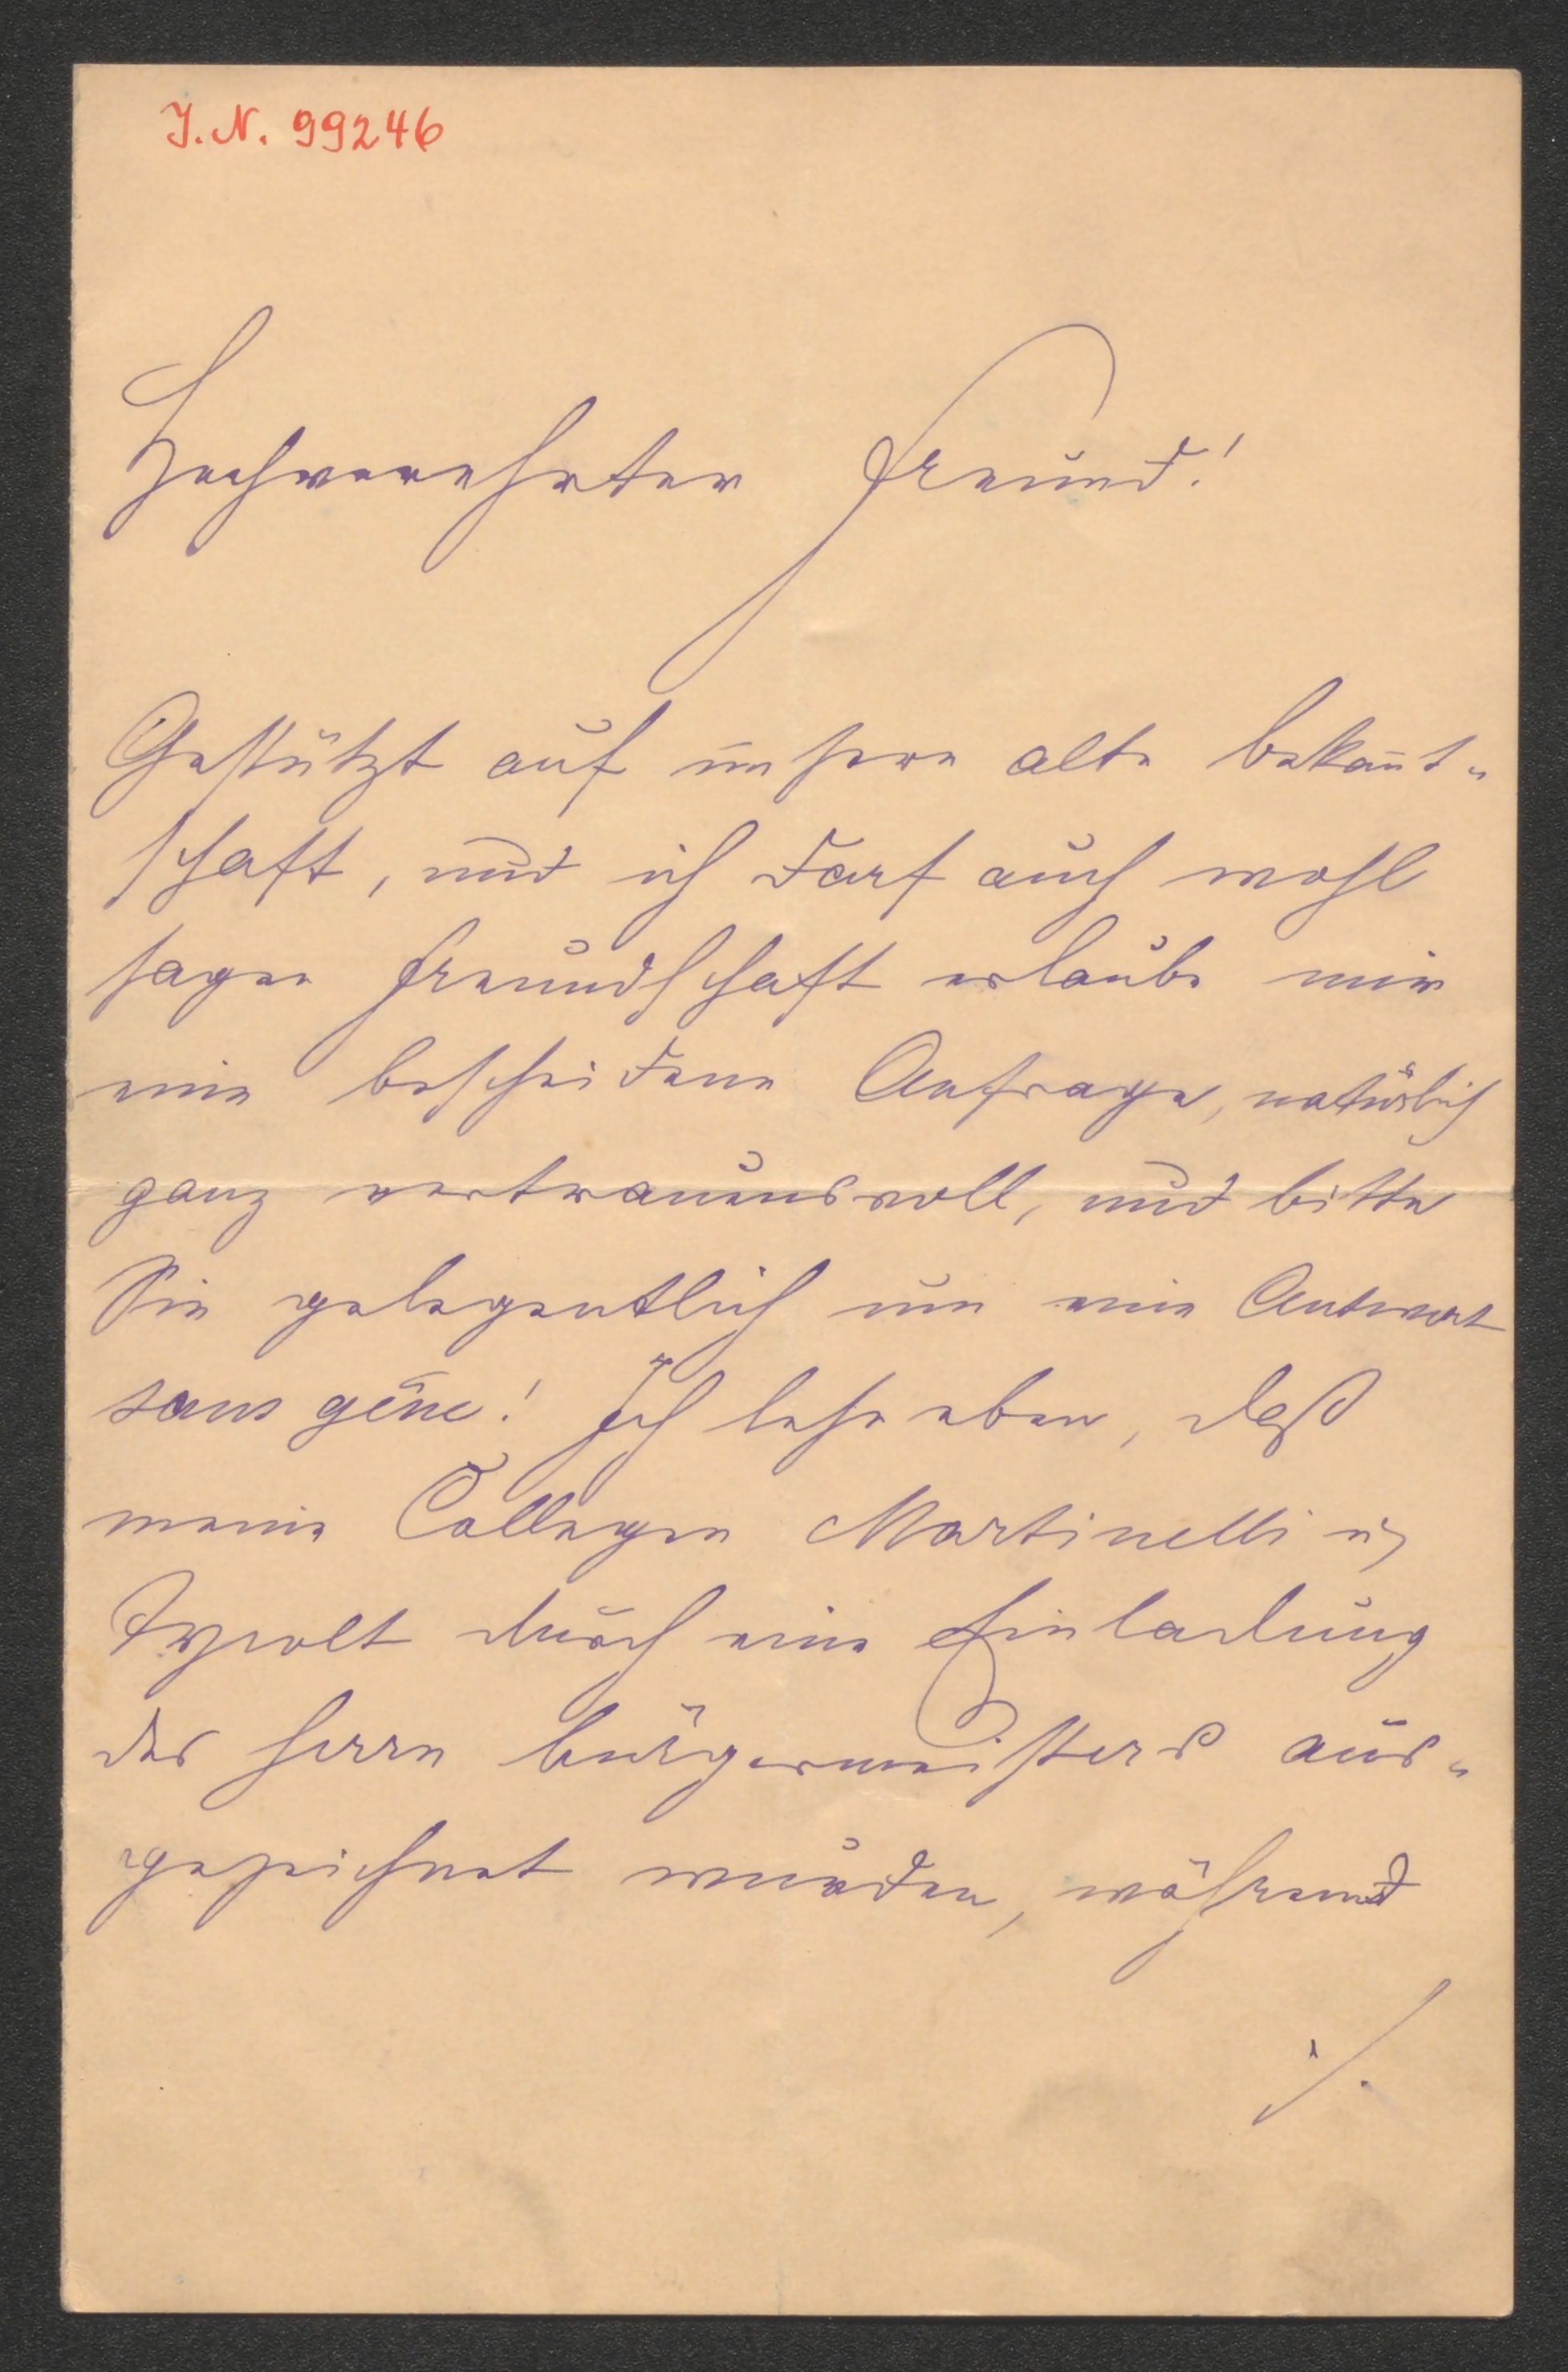 J. N. 99246
Hochverehrter Freund!
Gestützt auf unsere alte Bekañt-
schaft, und ich darf auch wohl
sagen Freundschaft erlaube mir
eine bescheidene Anfrage, natürlich
ganz vertrauensvoll, und bitte
Sie gelegentlich um eine Antwort
sans gêne! Ich lese eben, daß
meine Collegen Martinelli u
Tyrolt durch eine Einladung
des Herrn Bürgermeisters aus-
gezeichnet wurden, während
./.